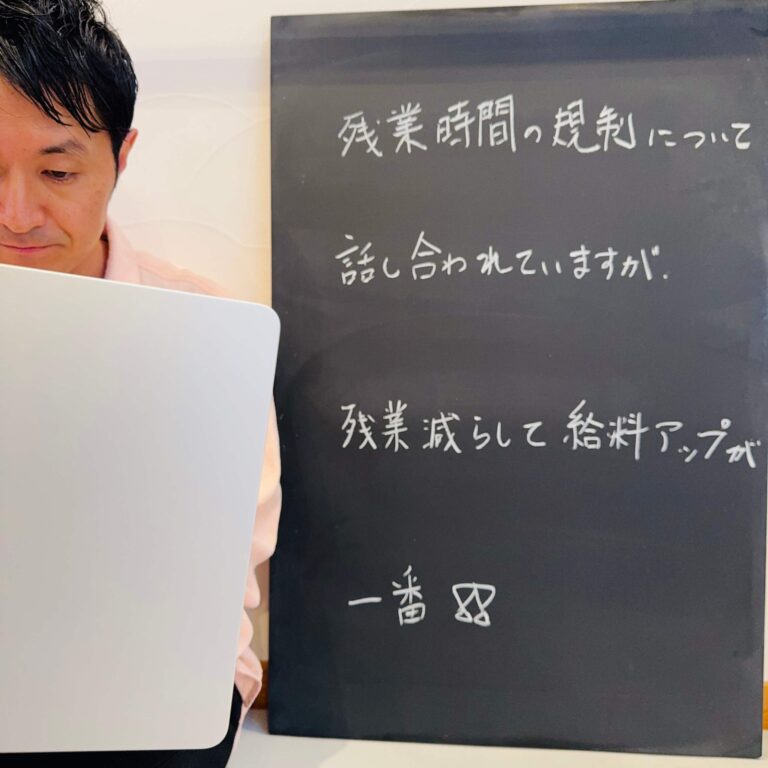 残業時間の規制について
話し合われていますが.
残業減らして給料アップが
一番